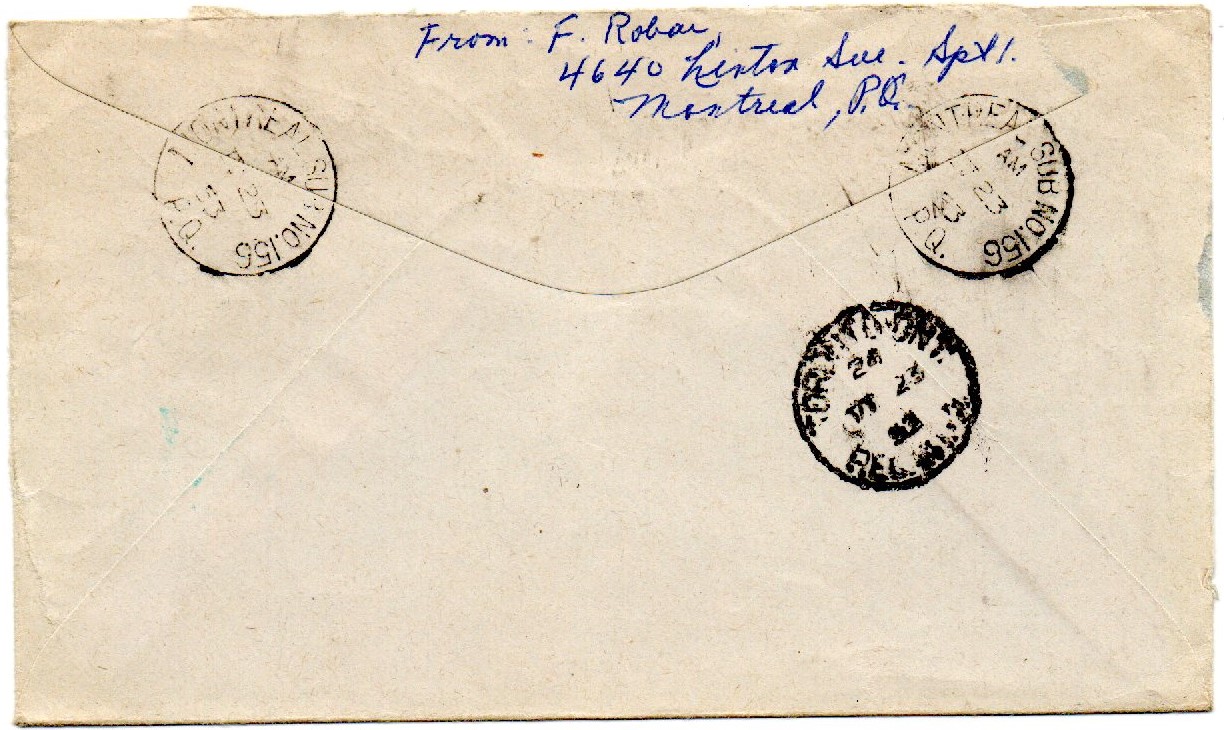 From: F. Robar,
4640 Linton Ave. Apt 1.
Montreal, P.Q.
MONTREAL SUB NO. 156
P.Q.
AM
23
53
MONTREAL SUB NO. 156
P.Q.
1
AM
23
53
TORONTO ONT.
24
23
53